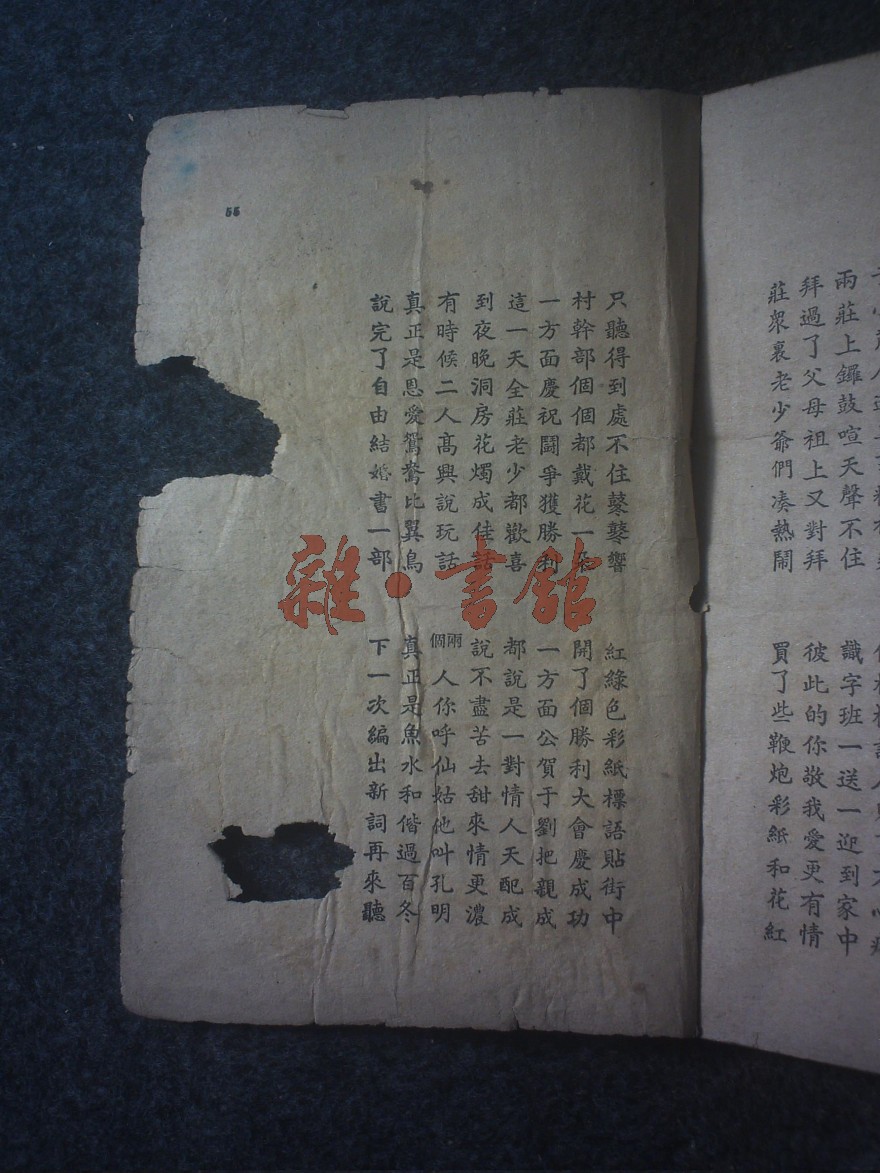 兩莊上鑼鼓喧天聲不住 識字班一送一迎到家中
拜過了父母祖上又對拜 彼此的你敬我愛更有情
莊眾裏老少爺們凑熱鬧 買了些鞭炮彩紙和花紅
只聽得到處不住鼕鼕響 紅綠色彩紙標語貼街中
村幹部個個都戴花一朵 開了個勝利大會慶成功
一方面慶祝鬪爭獲勝利 一方面公賀于劉把親成
這一天全莊老少都歡喜 都說是一對情人天配成
到夜晚洞房花燭成佳話 說不盡苦去甜來情更濃
有時候二人高興說玩話 兩個人你呼仙姑他叫孔明
真正是恩愛鴛鴦比翼鳥 真正是魚水和偕過百冬
說完了自由結婚書一部 下一次編出新詞再來聽
55
雜·書館